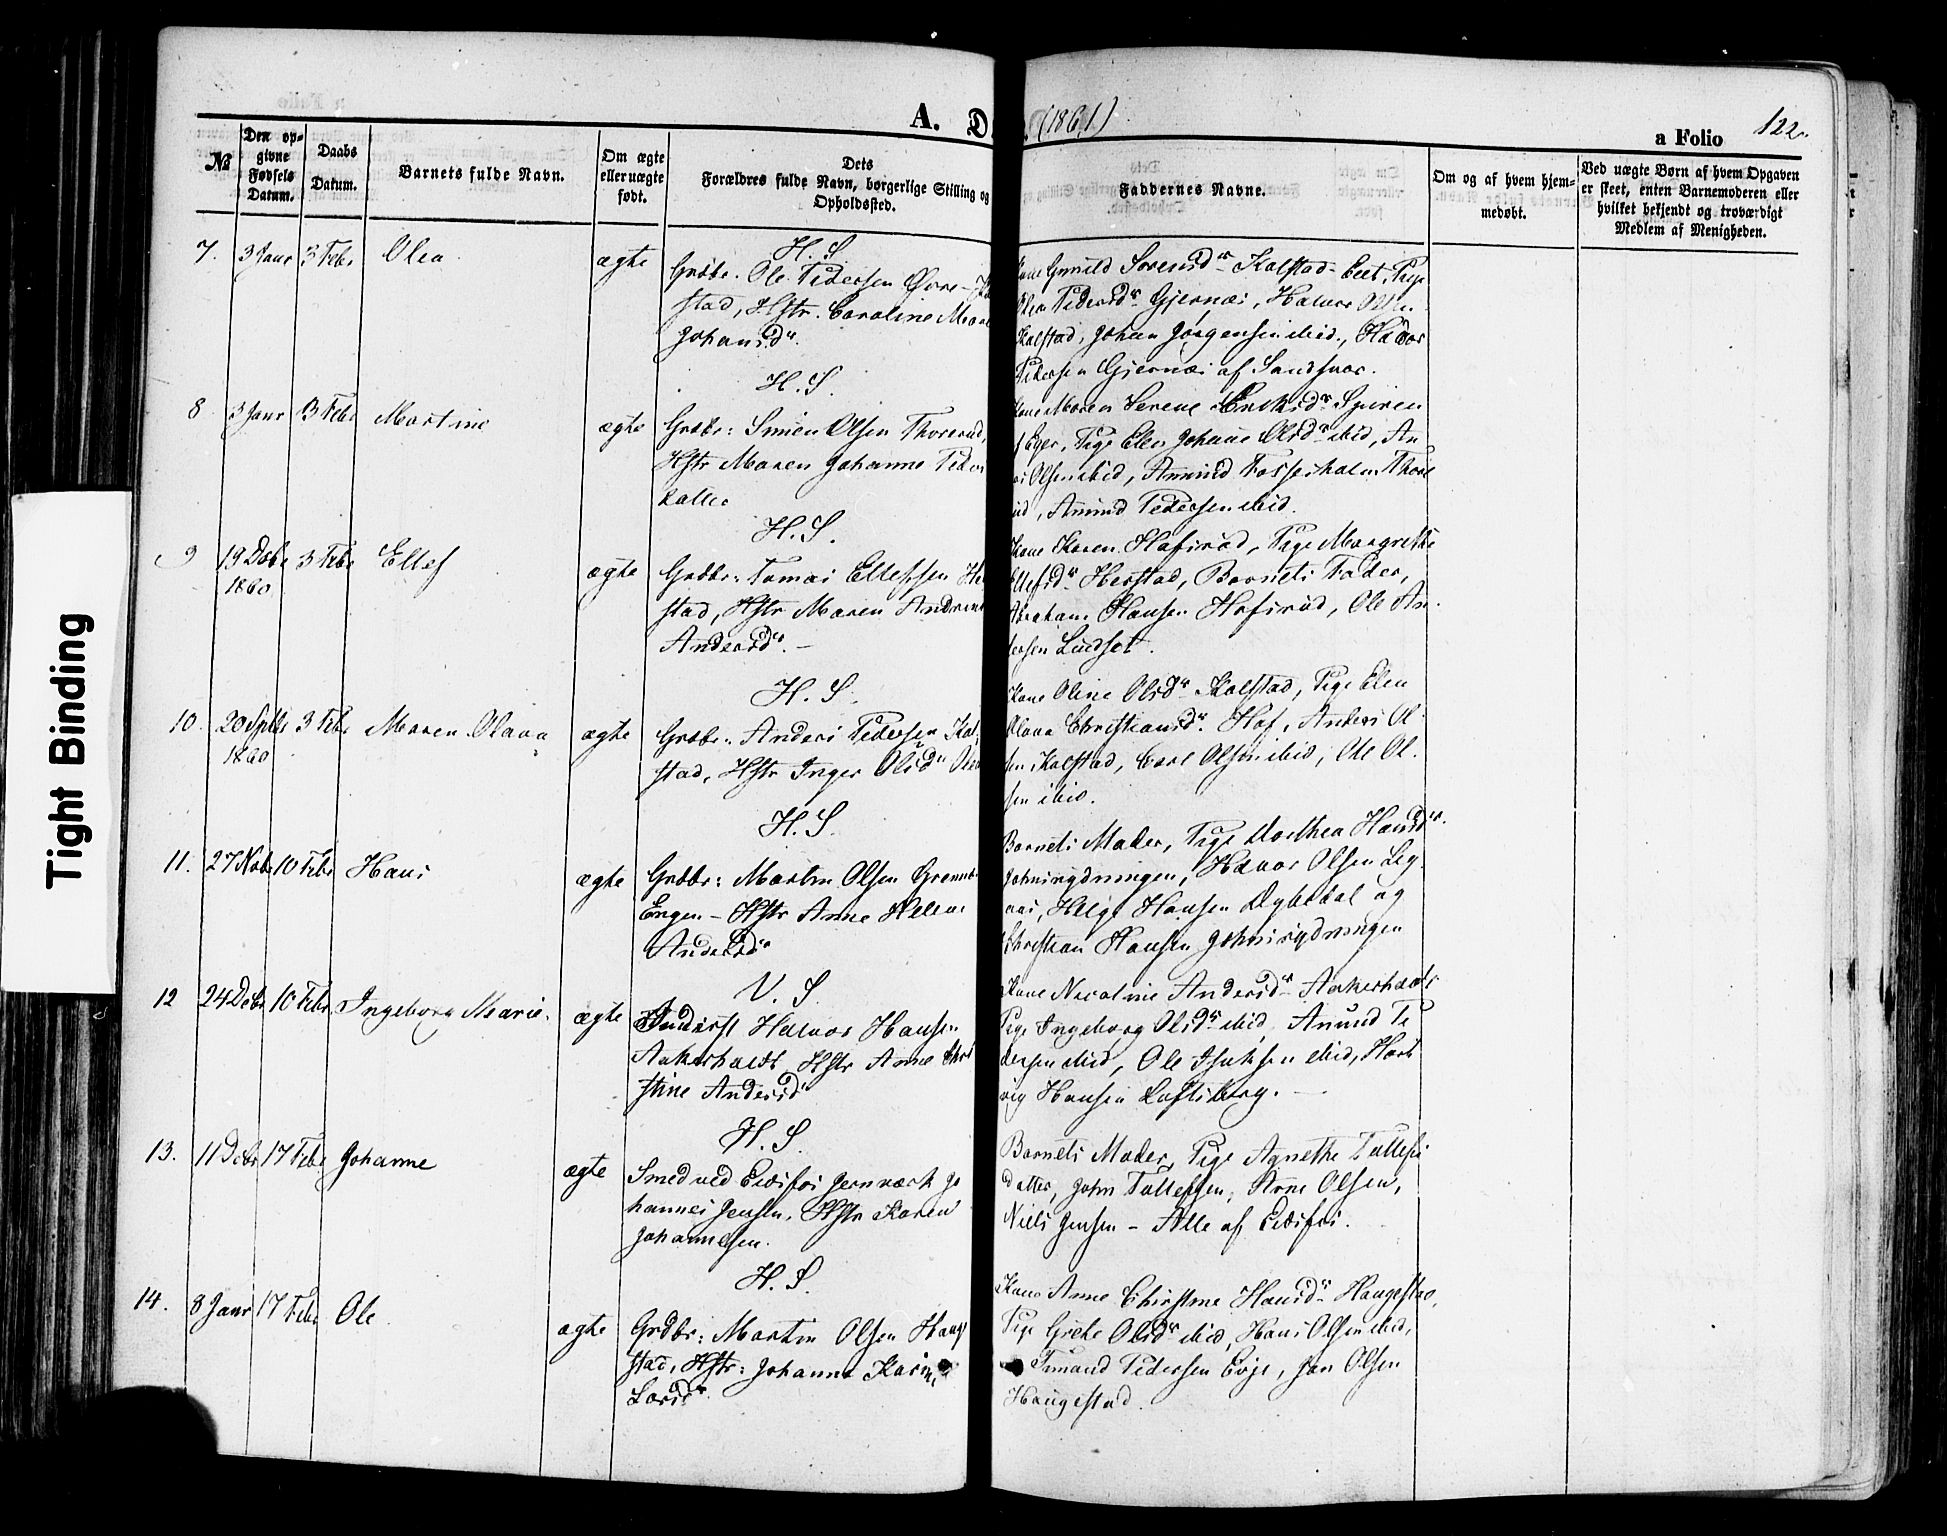 A. D (1861)
a Folio 122.
№
Den op-
givne
Fødsels
Datum.
Daabs
Datum.
Barnets fulde Navn.
Om ægte
eller uægte
født.
Dets
Forældres fulde Navn, borgerlige Stilling og
Opholdssted.
Faddernes Navne.
Om og af hvem hjem-
medøbt.
Ved uægte Børn af hvem Opgaven
er skeet, enten Barnemoderen eller
hvilket bekjendt og troværdigt
Medlem af Menigheden.
7. 3 Janr 3 Febr Olea ægte
H. S.
Grdbr. Ole Pedersen Øvre-
stad, Hstr. Caroline Mar
Johansdr.
Kone Gunild Sørensdr Kolstad-Eeet, Pige
Olea Pedersdr Gjernæs, Halvor Olsen
Kolstad, Johan Jørgensen ibid., Halvor
Pedersen Gjernæs af Sandsvær.
8 3 Janr 3 Febr Martine ægte
H. S.
Grdbr: Simen Olsen Thorerud,
Hstr Maren Johanne Peders
datter
Kone Maren Serene Eriksdr Spiren
f Eger, Pige Elen Johane Olsdr ibid, An
Olsen ibid, Amund Fosserholm Thore
ud, Amund Pedersen ibid.
9 19 Decbr 3 Febr Ellef ægte
1860
H. S.
Grdbr: Tomas Ellefsen He
stad, Hstr Maren Andrine
Andersdr. –
Kone Karen Hofsrud, Pige Margrethe
Ellefsdr Herstad, Barnets Fader,
Abraham Hansen Hofsrud, Ole An-
dersen Lindset.
10. 20 Sptbr 3 Febr Maren Olava ægte
1860
H. S.
Grdbr. Anders Pedersen Kol
stad, Hstr Inger Olsdr
Kone Oline Olsdr Kolstad, Pige Elen
Olava Christiansdr Hof, Anders Ol
sen Kolstad, Carl Olsen ibid, Ole Ol-
sen ibid.
11. 27 Novbr 10 Febr Hans ægte
H. S.
Grdbr: Martin Olsen Grønne
Engen – Hstr Anne Helene
Andersdr
Barnets Moder, Pige Dorthea Hansdr
Johnsrydningen, Halvor Olsen Lig
aas, Helge Hansen Dybedal og
Christian Hansen Johnsrydningen
12 24 Debr 10 Febr Ingeborg Marie. ægte
V. S.
Inderst Halvor Hansen
Aakerholdt, Hstr Anne Chri
stine Andersdr
Kone Nicoline Andersdr Aakerholdt
Pige Ingeborg Olsdr ibid, Amund Pe
dersen ibid, Ole Isaksen ibid, Hart
vig Hansen Loftsberg. –
13. 11 Debr 17 Febr Johanne ægte
H. S.
Smed ved Eidsfos Jernværk Jo
hannes Jensen, Hstr Karen
Johannesen.
Barnets Moder, Pige Agnethe Tollefs
datter, John Tollefsen, Arne Olsen,
Niels Jensen – Alle af Eidsfos.
14. 8 Janr 17 Febr Ole ægte
H. S.
Grdbr: Martin Olsen Haug
stad, Hstr: Johanne Karine
Larsdr
Kone Anne Christine Hansdr Haugestad,
Pige Grethe Olsdr ibid, Hans Olsen ibid,
Amund Pedersen Evje, Jan Olsen
Haugestad.
Tight Binding